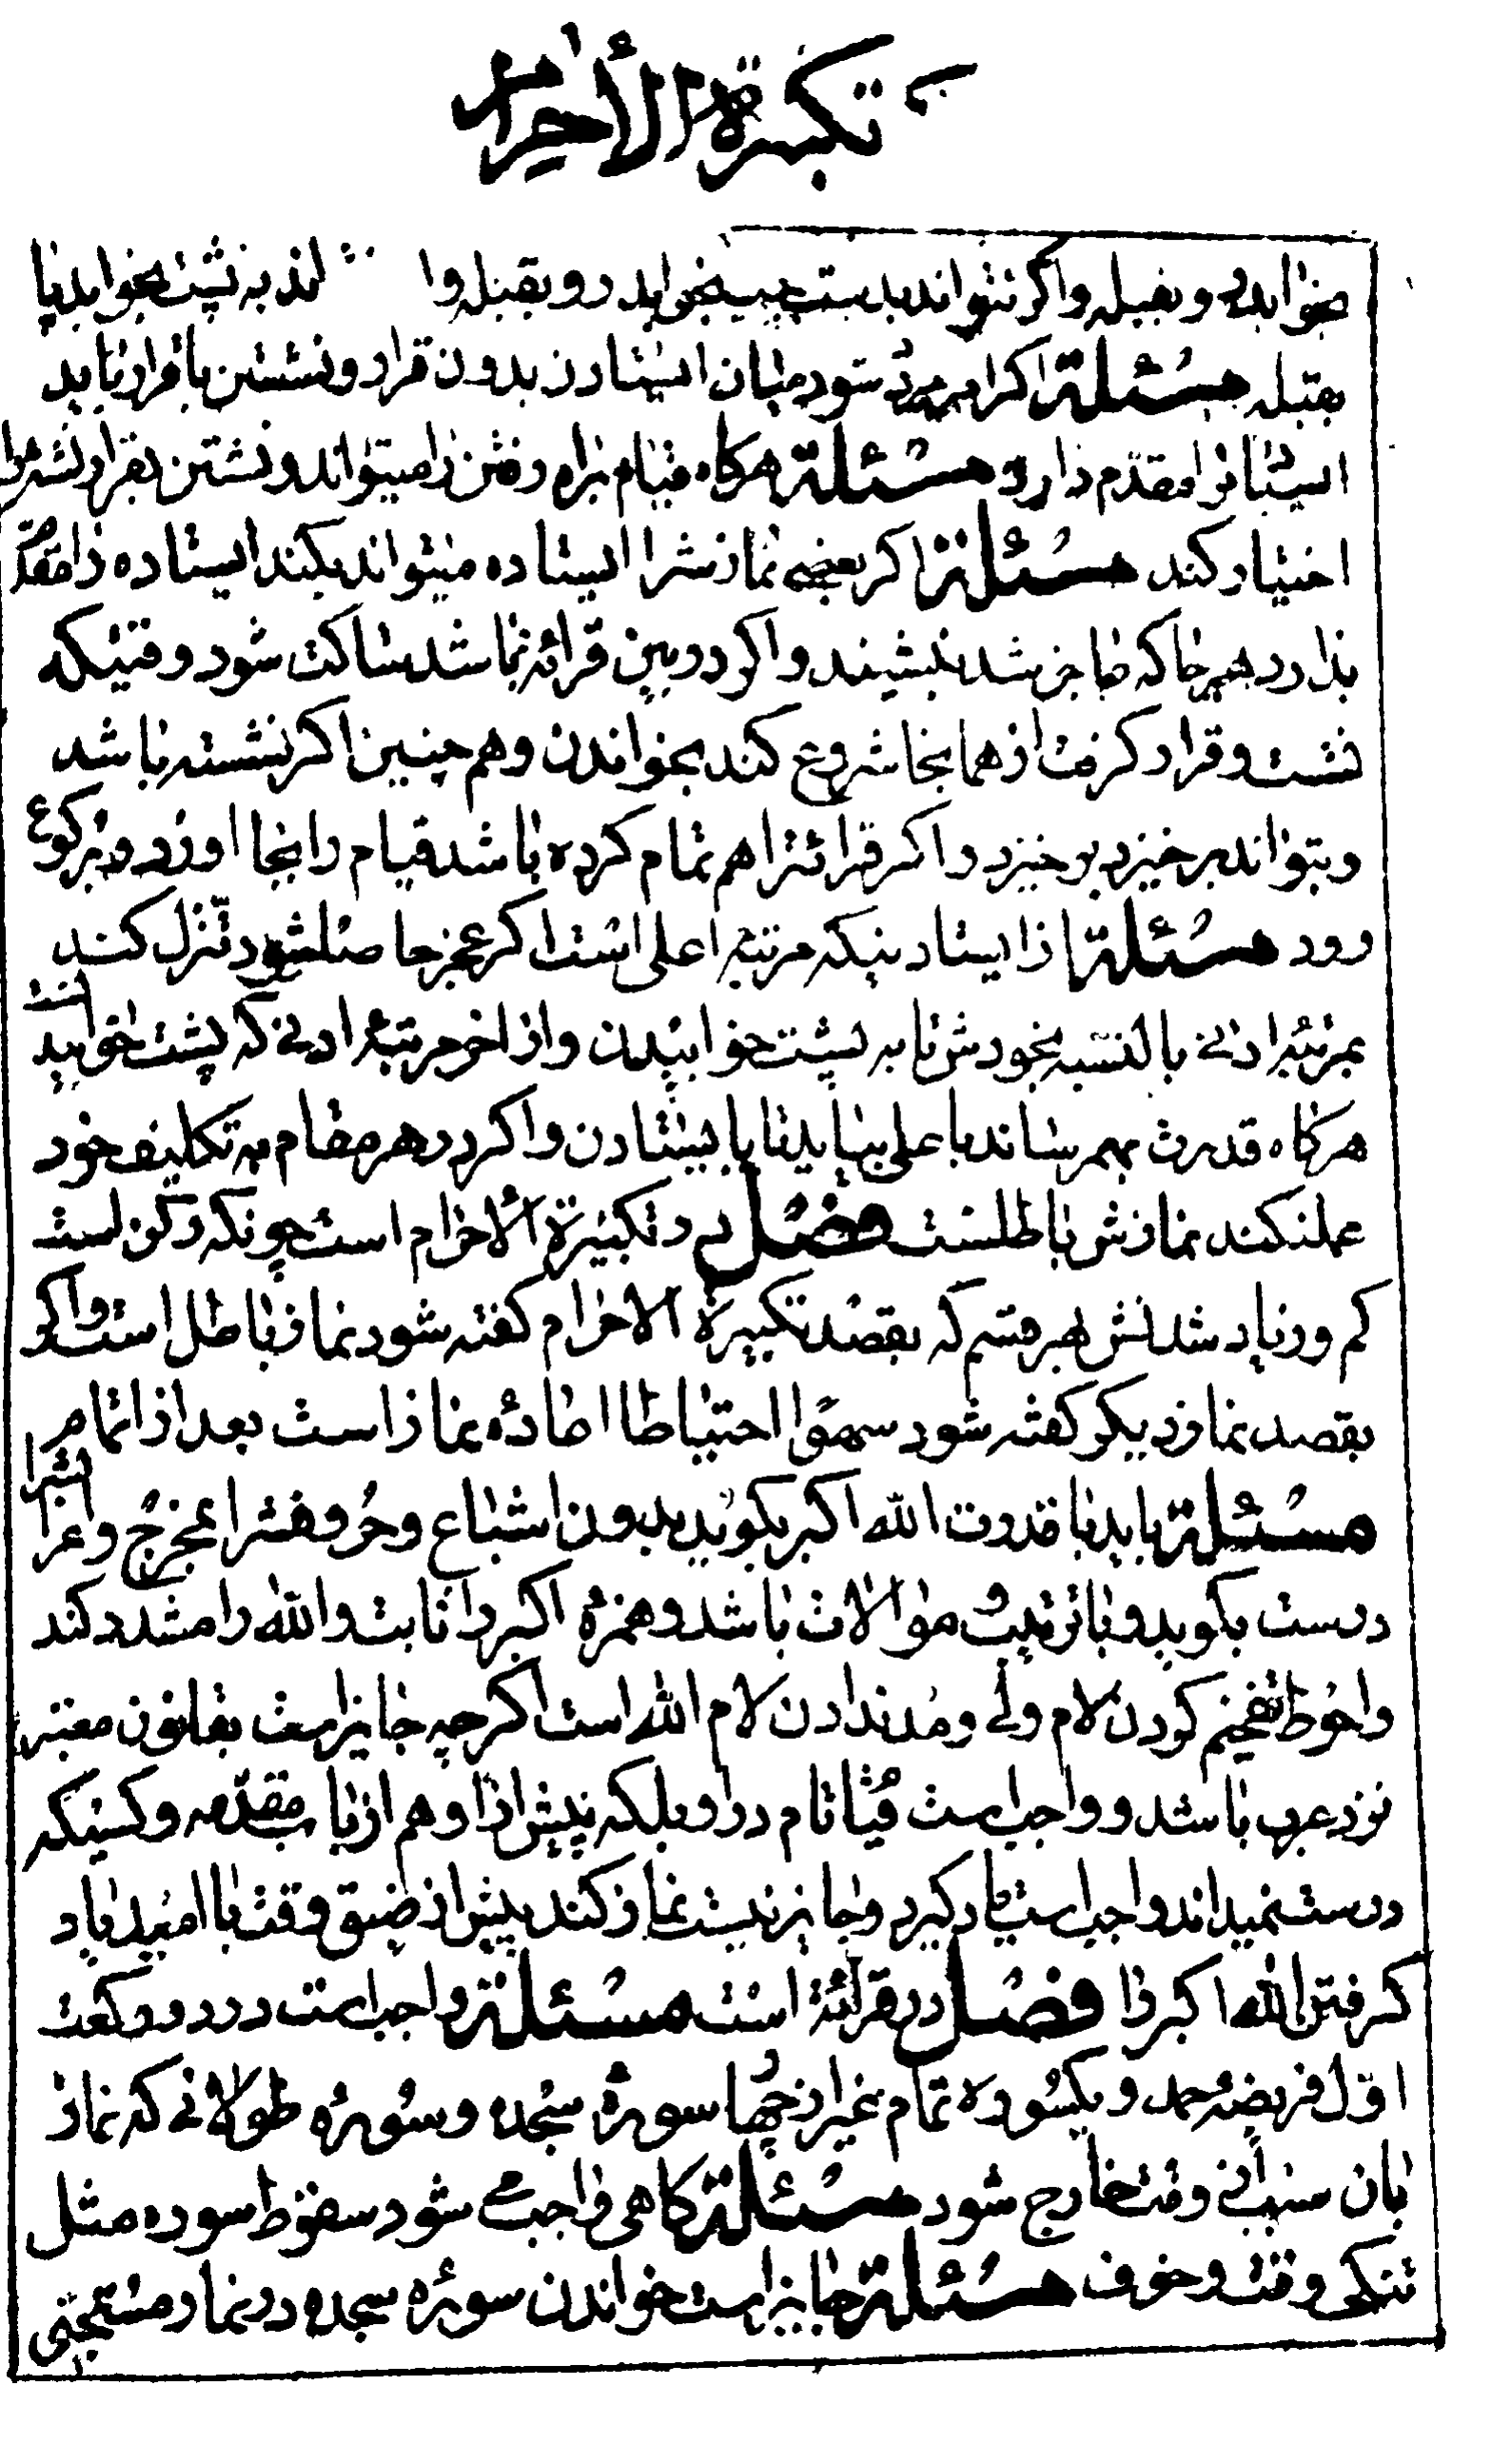 تکبیرة الأحرام
بخوابد رو بقبله و اگر نتواند بدست چپ بخوابد رو بقبله وا اند به پشت بخوابد پا
بقبله مسئلة اگر امر مردد شود میان ایستادن بدون قرار و نشستن با قرار باید
ایستادنرا مقدّم دارد مسئلة هرگاه قیام براه رفتن را میتواند و نشستن بقرار نشستنرا
اختیار کند مسئلة اگر بعضی نمازشرا ایستاده میتواند بکند ایستاده را مقدّم
بدارد هر جا که عاجز شد بنشیند و اگر در بین قرائه باشد ساکت شود وقتیکه
نشست و قرار گرفت از همانجا شروع کند بخواندن و هم چنین اگر نشسته باشد
و بتواند برخیزد برخیزد و اگر قرائترا هم تمام کرده باشد قیام را بجا اورد و برکوع
رود مسئلة از ایستادنیکه مرتبه اعلی است اگر عجز حاصلشود تنزل کند
بمرتبه ادنی بالنسبه بخودش تا به پشت خوابیدن و از اخر مرتبه ادنی که پشت خوابیدن است
هرگاه قدرت بهمرساند با علی بیاید تا بایستادن و اگر در هر مقام به تکلیف خود
عملنکند نمازش باطلست فصل در تکبیرة الأحرام است چونکه رکن است
کم و زیاد شدنش هر قسم که بقصد تکبیرة الاحرام گفته شود نماز باطل است و اگر
بقصد نماز دیگر گفته شود سهوًا احتیاطا اعادهٔ نماز است بعد از اتمام
مسئلة باید با قدرت الله اکبر بگوید بدون اشباع و حروفشرا بمخرج و اعرابشرا
درست بگوید و با ترتیب و موالات باشد و همزه اکبر را ثابت و الله را مشدد کند
و احوط تفخیم کردن لام ولی و مُد ندادن لام الله است اگرچه جایز است بقانون معتبر
نزد عرب باشد و واجب است قیٰا تام در او بلکه پیش از او هم از باب مقدّمه و کسیکه
درست نمیداند واجب است یاد گیرد و جایز نیست نماز کند پیش از ضیق وقت با امید یاد
گرفتن الله اکبر را فصل در قرائة است مسئلة واجب است در دو رکعت
اوّل فریضه حمد و یکسوره تمام بغیر از چهار سورهٔ سجده و سورهٔ طولانی که نماز
بان سبب از وقت خارج شود مسئلة گاهی واجب می شود سقوط سوره مثل
تنگی وقت و خوف مسئلة جایز است خواندن سورهٔ سجده در نماز مستحبّی